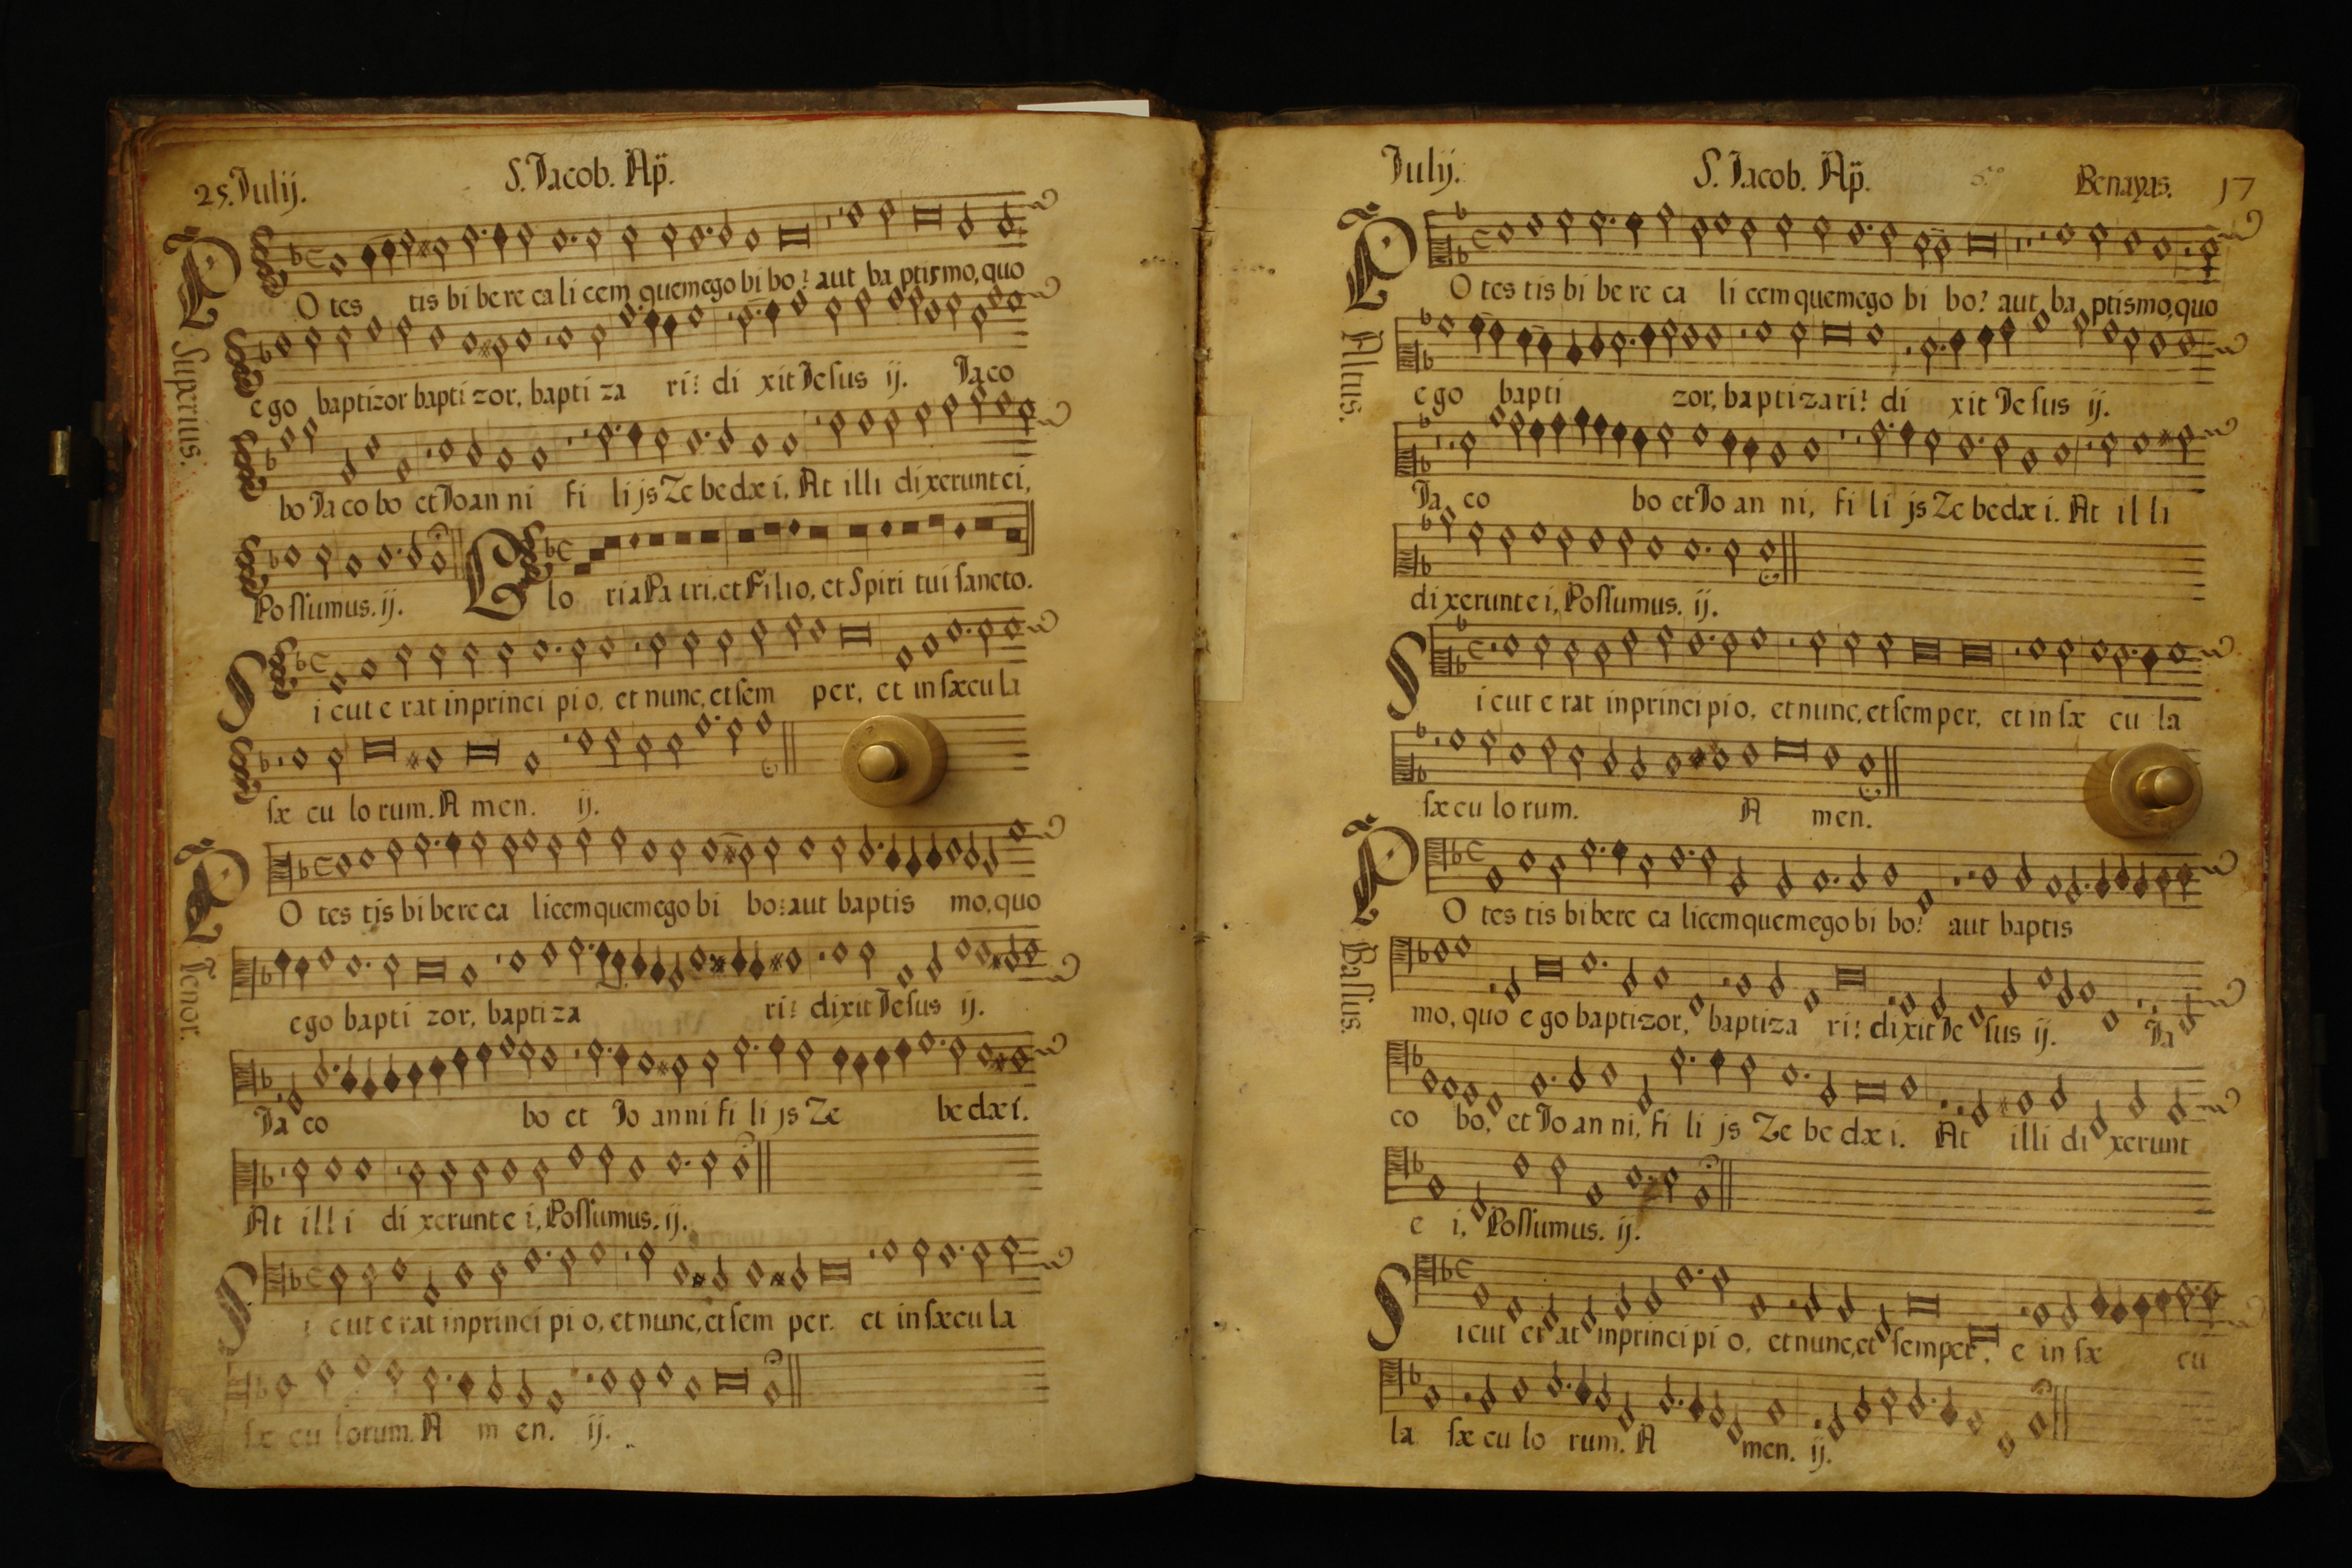 25. Julij. S. Jacob. Ap.
Superius.
PO tes tis bi be re ca li cem quem ego bi bo? aut ba ptismo, quo
ego baptizor bapti zor, bapti za ri? di xit Jesus ij. Jaco
bo Ja co bo et Joan ni fi li js Ze be dæ i. At illi dixerunt ei,
Possumus. ij. Glo ria Pa tri, et Filio, et Spiri tui sancto.
Si cut e rat in princi pi o, et nunc, et sem per, et in sæcu la
sæ cu lo rum. A men. ij.
Tenor.
PO tes tis bi bere ca licem quem ego bi bo? aut baptis mo, quo
ego bapti zor, baptiza ri? dixit Jesus ij.
Ja co bo et Jo anni fi li js Ze be dæ i.
At ill i di xerunt e i, Possumus. ij.
Si cut e rat in princi pi o, et nunc, et sem per. et in sæcu la
sæ cu lorum. A m en. ij.
Julij. S. Jacob. Ap. Benayas. 17
Altus.
PO tes tis bi be re ca li cem quem ego bi bo? aut ba ptismo, quo
ego bapti zor, baptizari? di xit Je sus ij.
Ja co bo et Jo an ni, fi li js Ze be dæ i. At il li
dixerunt e i, Possumus. ij.
Si cut e rat in princi pi o, et nunc, et sem per, et in sæ cu la
sæ cu lo rum. A men.
Bassus.
PO tes tis bi bere ca licem quem ego bi bo? aut baptis
mo, quo ego baptizor, baptiza ri? dixit Je sus ij. Ja
co bo, et Jo an ni, fi li js Ze be dæ i. At illi di xerunt
e i, Possumus. ij.
Si cut er at in princi pi o, et nunc, et semper, e in sæ cu
la sæ cu lo rum. A men. ij.